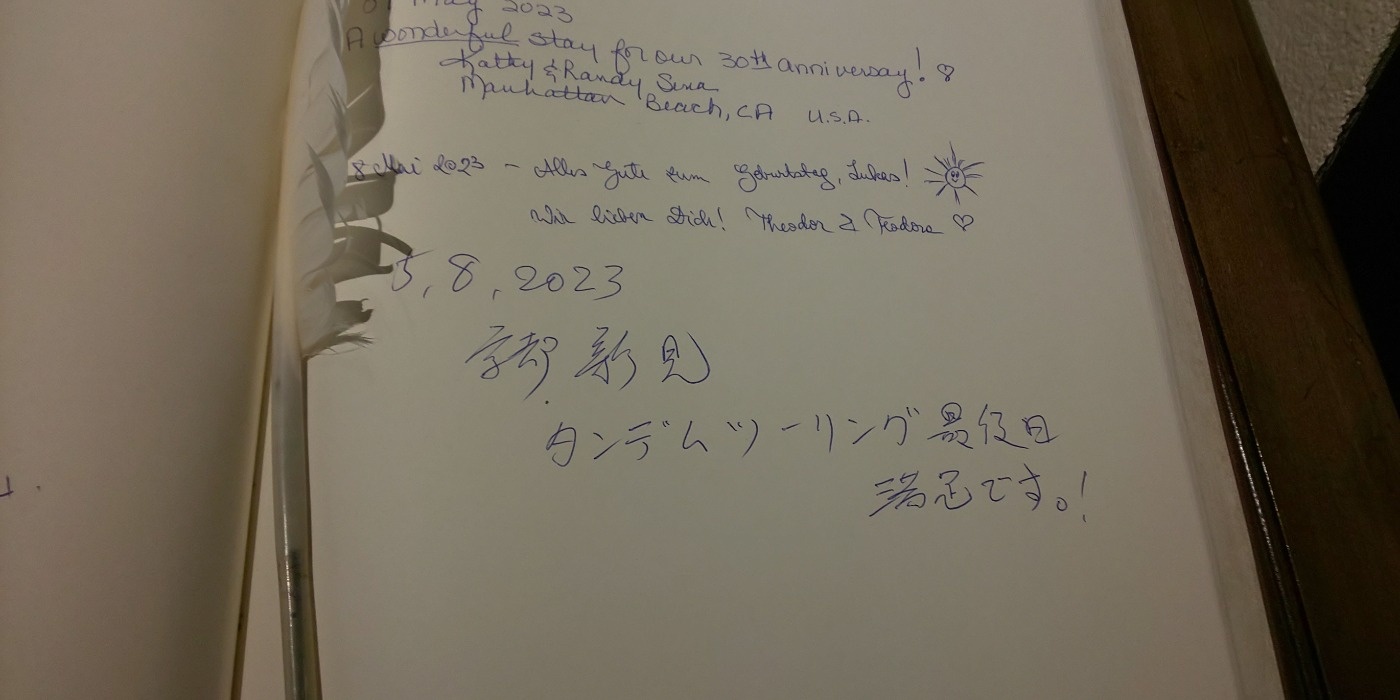 May 2023
A wonderful stay for our 30th anniversary! ♡
Kathy & Randy
Manhattan Beach, CA U.S.A.
8 Mai 2023 - Alles Gute zum Geburtstag, Lukas!
Wir lieben Dich! Theodor & Teodora ♡
5, 8, 2023
京都 新見
タンデムツーリング最終日
満足です。!